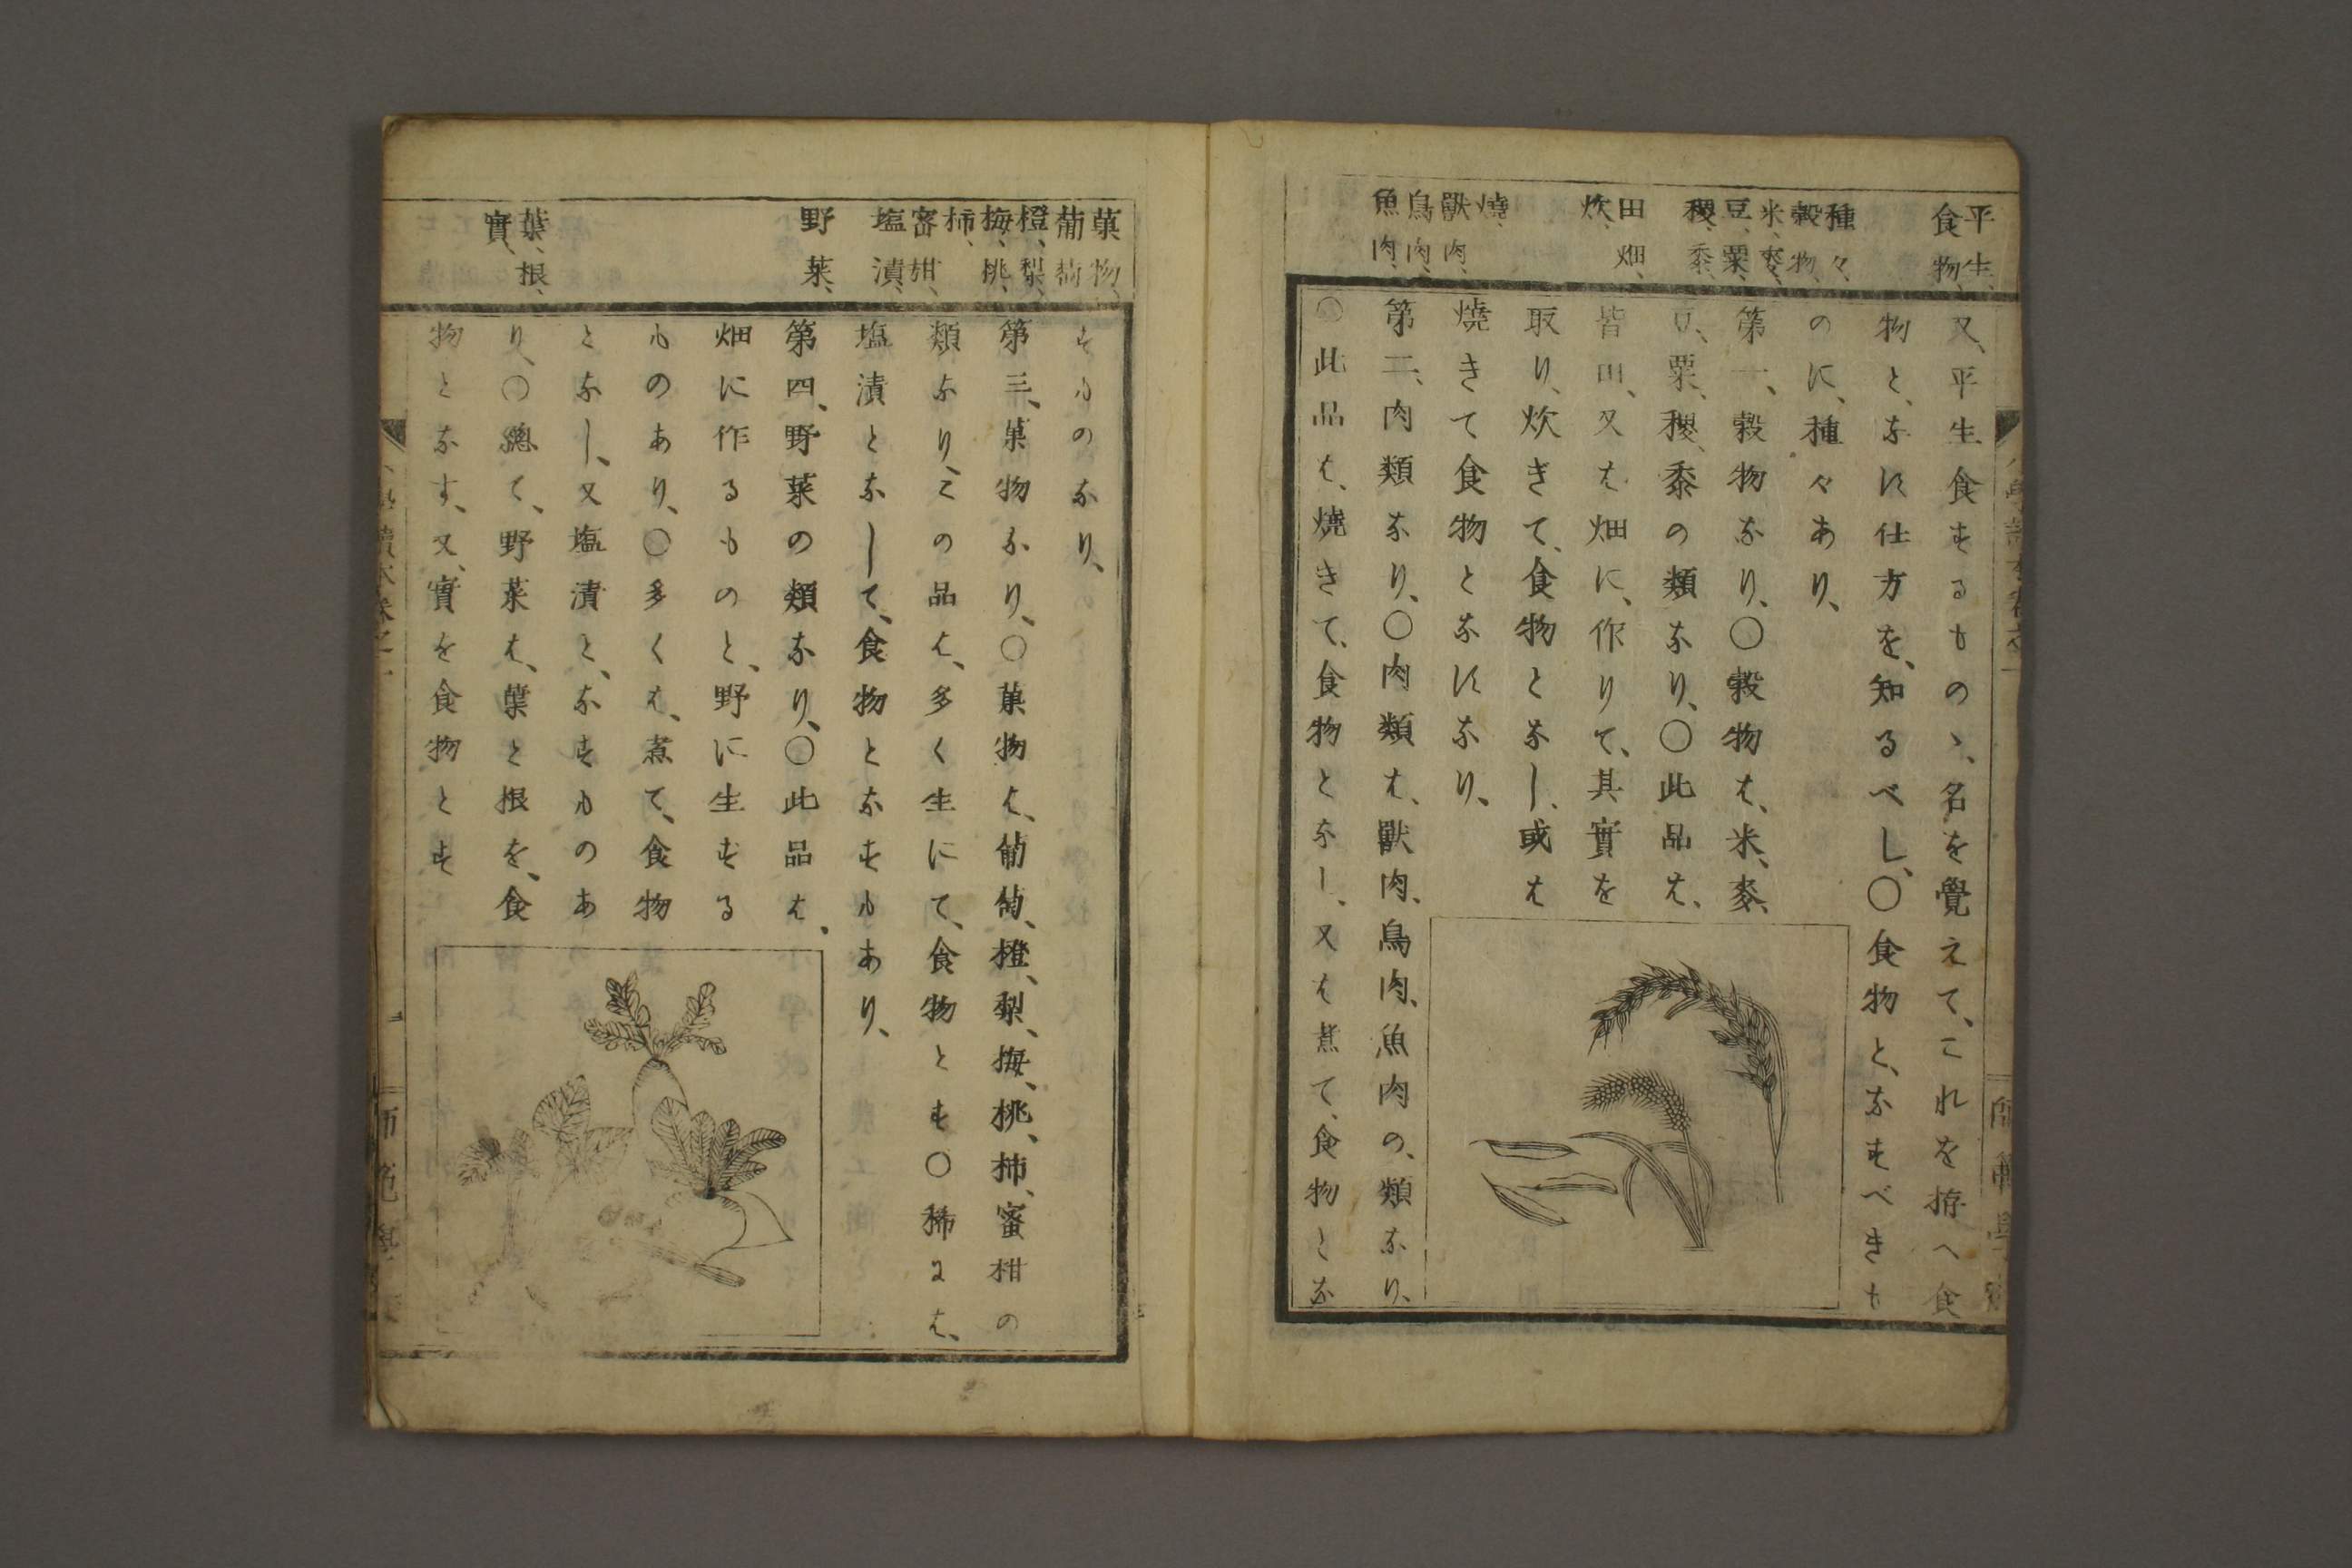 平生、
食物、
種々、
穀物、
米、麥、
豆、粟、
稷、黍、
田畑、
炊、
燒、
獸肉、
鳥肉、
魚肉、
又、平生食するものゝ、名を覺えて、これを拵へ食
物と、なに仕方を、知るべし、〇食物と、なすべきも
のに、種々あり、
第一、穀物なり、〇穀物は、米、麥、
豆、粟、稷、黍の類なり、〇此品は、
皆田、又は畑に、作りて、其實を
取り、炊ぎて、食物となし、或は
燒きて食物となすなり、
第二、肉類なり、〇肉類は、獸肉、鳥肉、魚肉の、類なり、
〇此品は、燒きて、食物となし、又は煮て、食物とな
師範學校
菓物、
葡萄、
橙、梨、
梅、桃、
柿、
蜜柑、
塩漬、
野菜、
葉、根、
實、
すものなり、
第三、菓物なり、〇菓物は、葡萄、橙、梨、梅、桃、柿、蜜柑の
類なり、この品は、多く生にて、食物とす〇稀には、
塩漬となして、食物となすもあり、
第四、野菜の類なり、〇此品は、
畑に作るものと、野に生ずる
ものあり、〇多くは、煮て、食物
となし、又塩漬と、なすものあ
り、〇總て、野菜は、葉と根を、食
物となす、又、實を食物とす
師範學校